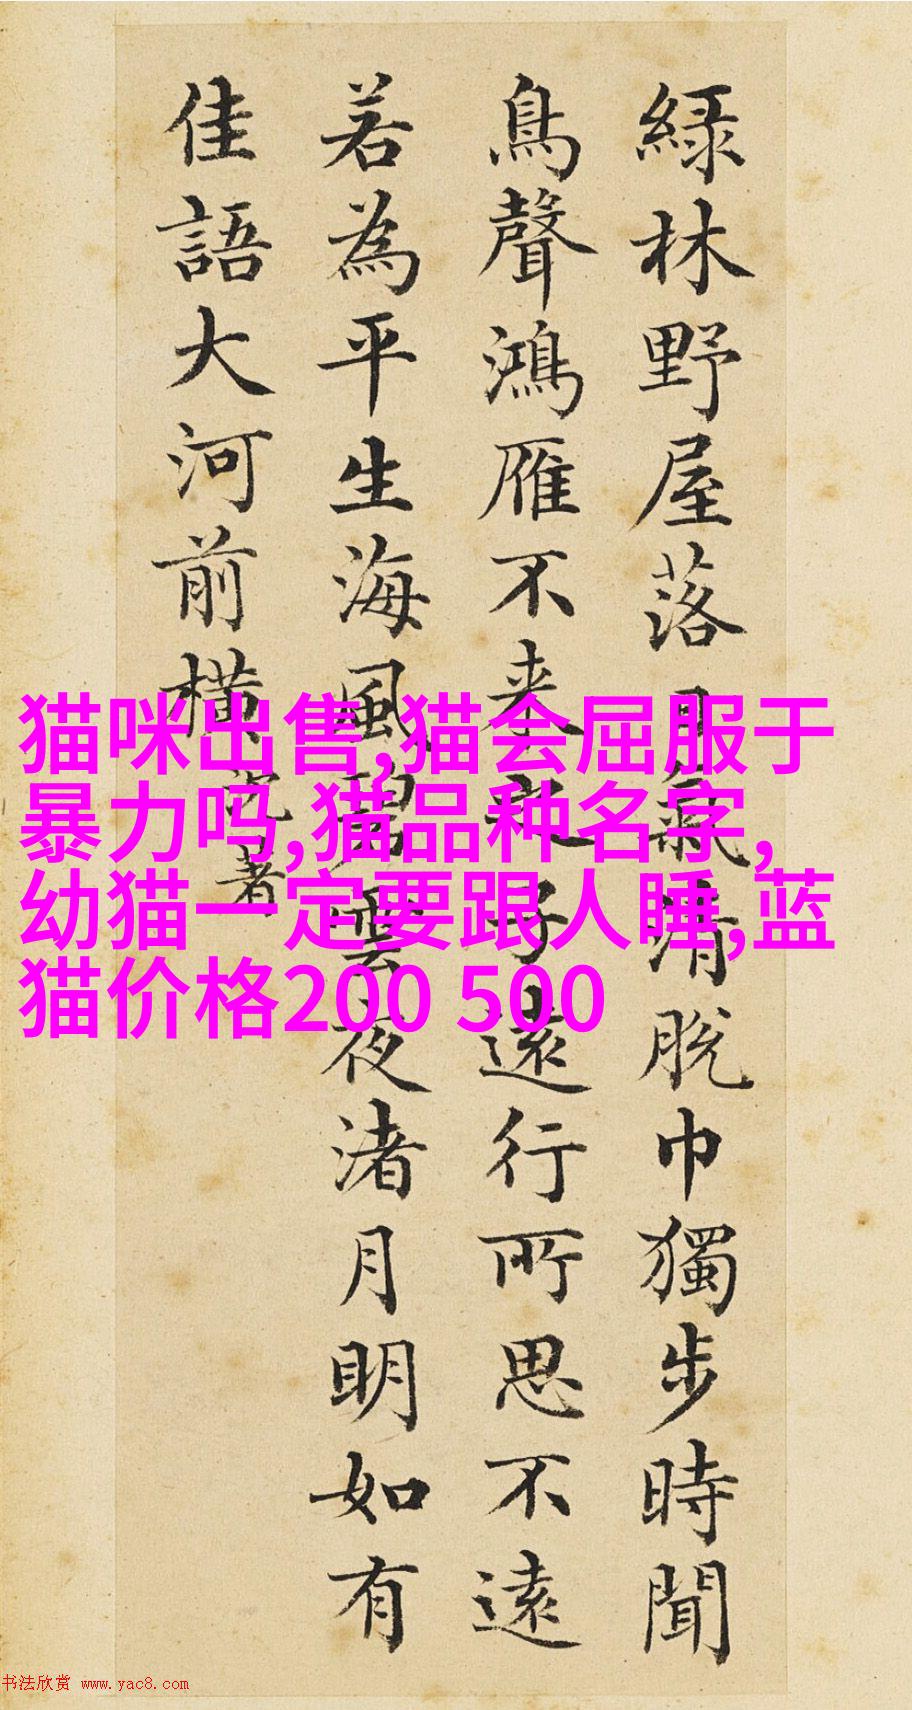 綠林野屋落日氣清脫巾獨步時聞
鳥聲鴻雁不來之子遠行所思不遠
若為平生海風碧雲夜渚月明如有
佳語大河前橫沈著
猫咪出售,猫会屈服于
暴力吗,猫品种名字,
幼猫一定要跟人睡,蓝
猫价格200 500
书法欣赏 www.yac8.com